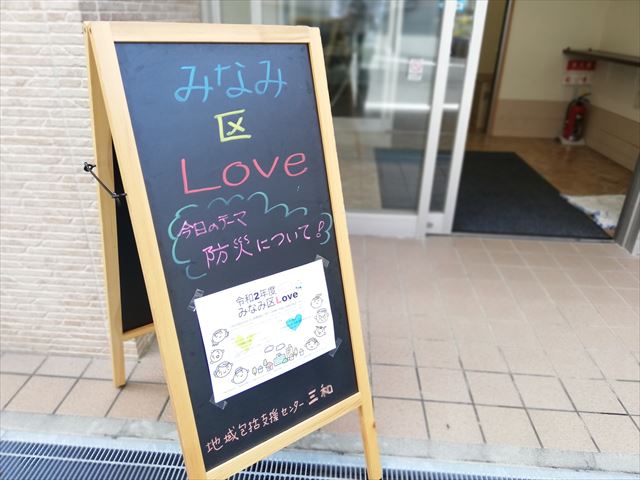 みなみ
区
Love
今日のテーマ
防災について!
令和2年度
みなみ区Love
地域包括支援センター 三和